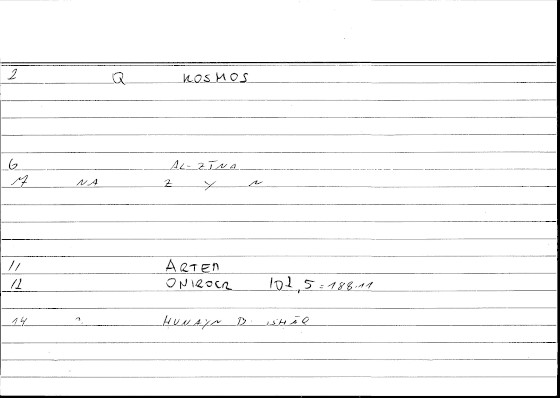 2 Q KOSMOS
6 AL-ZĪNA
17 NA Z Y N
11 ARTEM
12 ONIROCR 101,5=188.11
14 ? ḤUNAYN B. ISḤĀQ